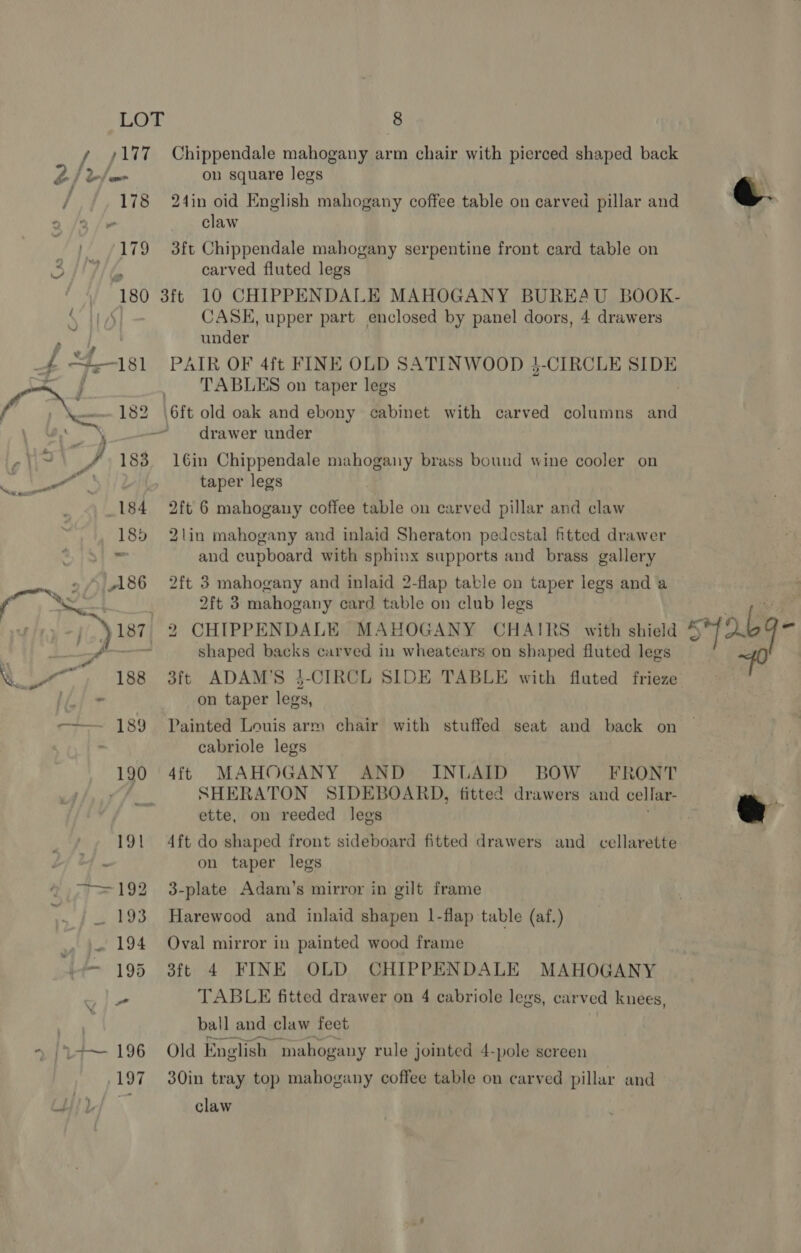 LOT 8
177 Chippendale mahogany arm chair with pierced shaped back
on square legs
178 24in old English mahogany coffee table on carved pillar and
claw
179 3ft Chippendale mahogany serpentine front card table on
carved fluted legs
180 3ft 10 CHIPPENDALE MAHOGANY BUREAU BOOK-
CASE, upper part enclosed by panel doors, 4 drawers
under
181 PAIR OF 4ft FINE OLD SATINWOOD ½-CIRCLE SIDE
TABLES on taper legs
182 6ft old oak and ebony cabinet with carved columns and
drawer under
183 16in Chippendale mahogany brass bound wine cooler on
taper legs
184 2ft 6 mahogany coffee table on carved pillar and claw
185 21in mahogany and inlaid Sheraton pedestal fitted drawer
and cupboard with sphinx supports and brass gallery
186 2ft 3 mahogany and inlaid 2-flap table on taper legs and a
2ft 3 mahogany card table on club legs
187 2 CHIPPENDALE MAHOGANY CHAIRS with shield
shaped backs carved in wheatears on shaped fluted legs
188 3ft ADAM'S ½-CIRCL SIDE TABLE with fluted frieze
on taper legs,
189 Painted Louis arm chair with stuffed seat and back on
cabriole legs
190 4ft MAHOGANY AND INLAID BOW FRONT
SHERATON SIDEBOARD, fitted drawers and cellar-
ette, on reeded legs
191 4ft do shaped front sideboard fitted drawers and cellarette
on taper legs
192 3-plate Adam's mirror in gilt frame
193 Harewood and inlaid shapen 1-flap table (af.)
194 Oval mirror in painted wood frame
195 3ft 4 FINE OLD CHIPPENDALE MAHOGANY
TABLE fitted drawer on 4 cabriole legs, carved knees,
ball and claw feet
196 Old English mahogany rule jointed 4-pole screen
197 30in tray top mahogany coffee table on carved pillar and
claw